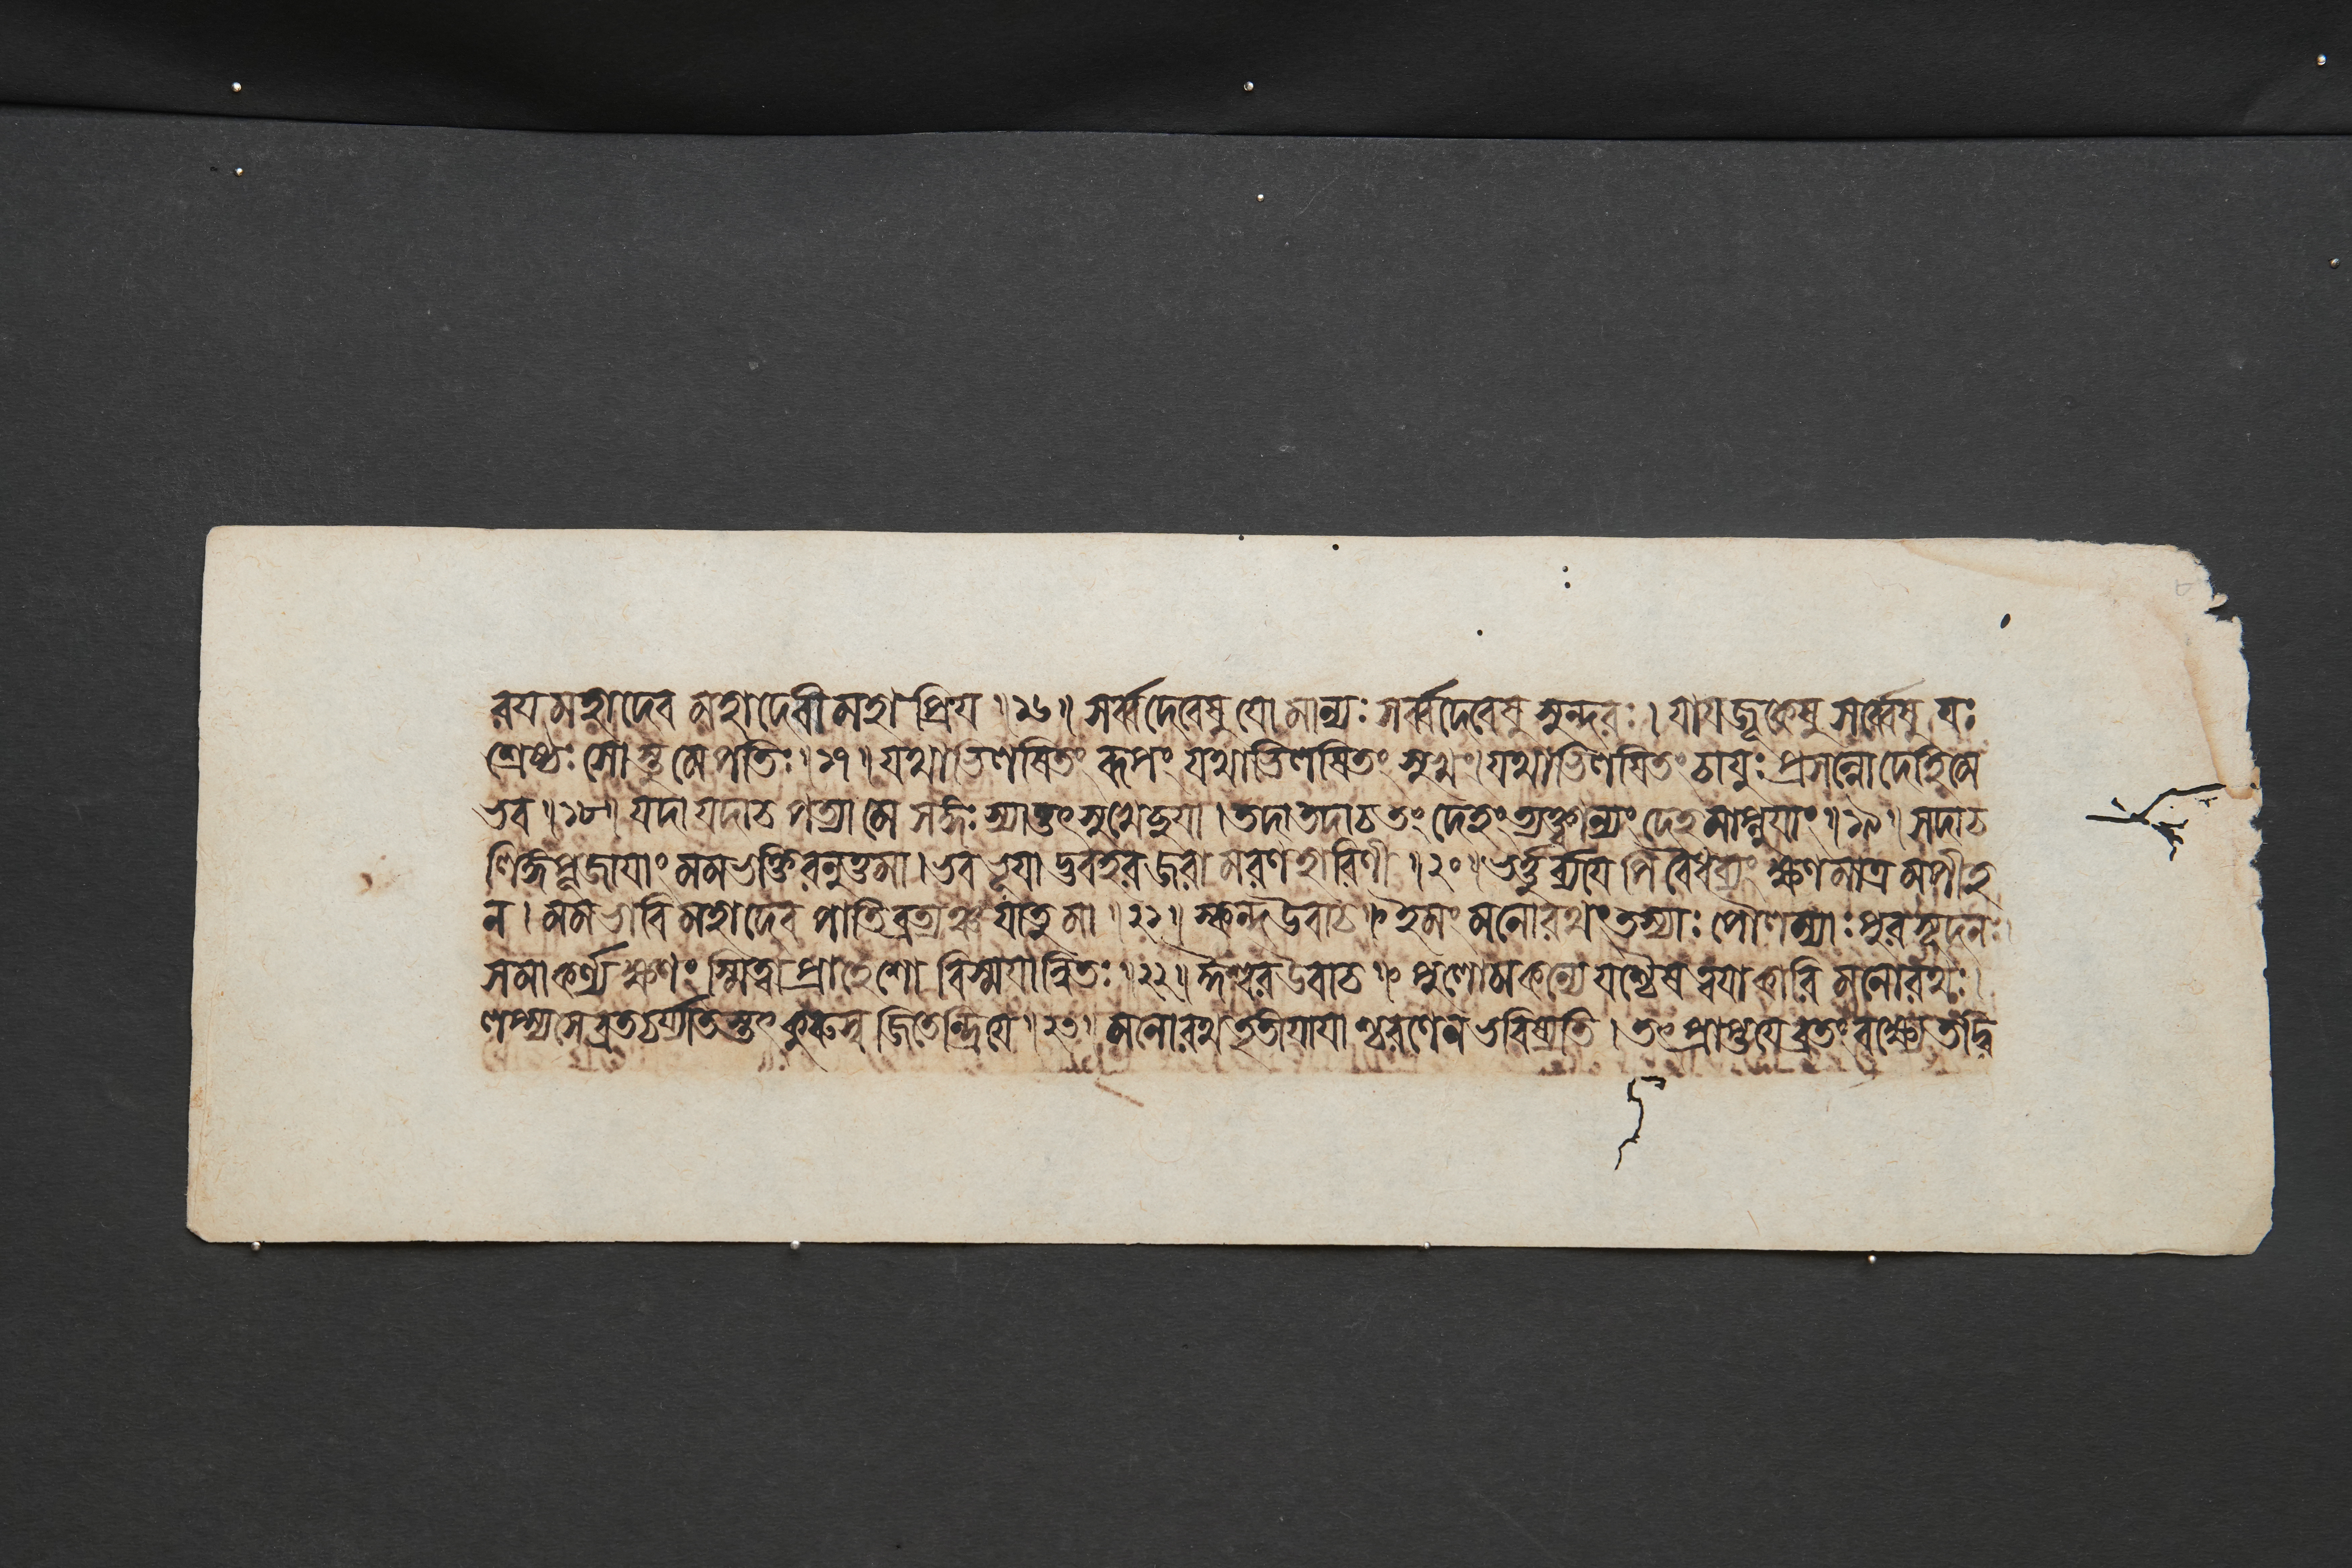 রয মহাদেব মহাদেবীমহাপ্রিয ॥ ১৬ ॥ সর্ব্বদেবেষু যো মান্যঃ সর্ব্বদেবেষু সুন্দরঃ । যাযজূকেষু সর্ব্বেষু যঃ
শ্রেষ্ঠঃ সোস্তু মে পতিঃ ॥ ১৭ ॥ যথাভিলষিতং রূপং যথাভিলষিতং সুখং। যথাভিলষিতং চাযুঃ প্রসন্নো দেহি মে
ভব ॥ ১৮ ॥ যদা যদা চ পত্যা মে সঙ্গঃ স্যাত্তৎসুখেচ্ছযা । তদা তদা চ তং দেহং ত্যক্ত্বান্যং দেহমাপ্নুযাং ॥ ১৯ ॥ সদা চ
লিঙ্গপূজাযাং মম ভক্তিরনুত্তমা । ভব ভূযাদ্ভবহর জরামরণহারিণী ॥ ২০ ॥ ভর্ত্তুর্ব্যযেপি বৈধব্যং ক্ষণমাত্রমপীহ
ন । মম ভাবি মহাদেব পাতিব্রত্যঞ্চ যাতু মা ॥ ২১ ॥ স্কন্দ উবাচ ॥ ইমং মনোরথং তস্যাঃ পৌলম্যাঃ পুরসূদনঃ।
সমাকর্ণ্য ক্ষণং স্মিত্বা প্রাহেশো বিস্মযান্বিতঃ ॥ ২২ ॥ ঈশ্বর উবাচ ॥ পুলোমকন্যে যশ্চৈষ ত্বযাকারি মনোরথঃ।
লপ্স্যসে ব্রতচর্য্যাতস্তৎ কুরুষ্ব জিতেন্দ্রিযে ॥ ২৩ ॥ মনোরথতৃতীযাযাশ্চরণেন ভবিষ্যতি । তৎপ্রাপ্তযে ব্রতং বক্ষ্যে তদ্বি